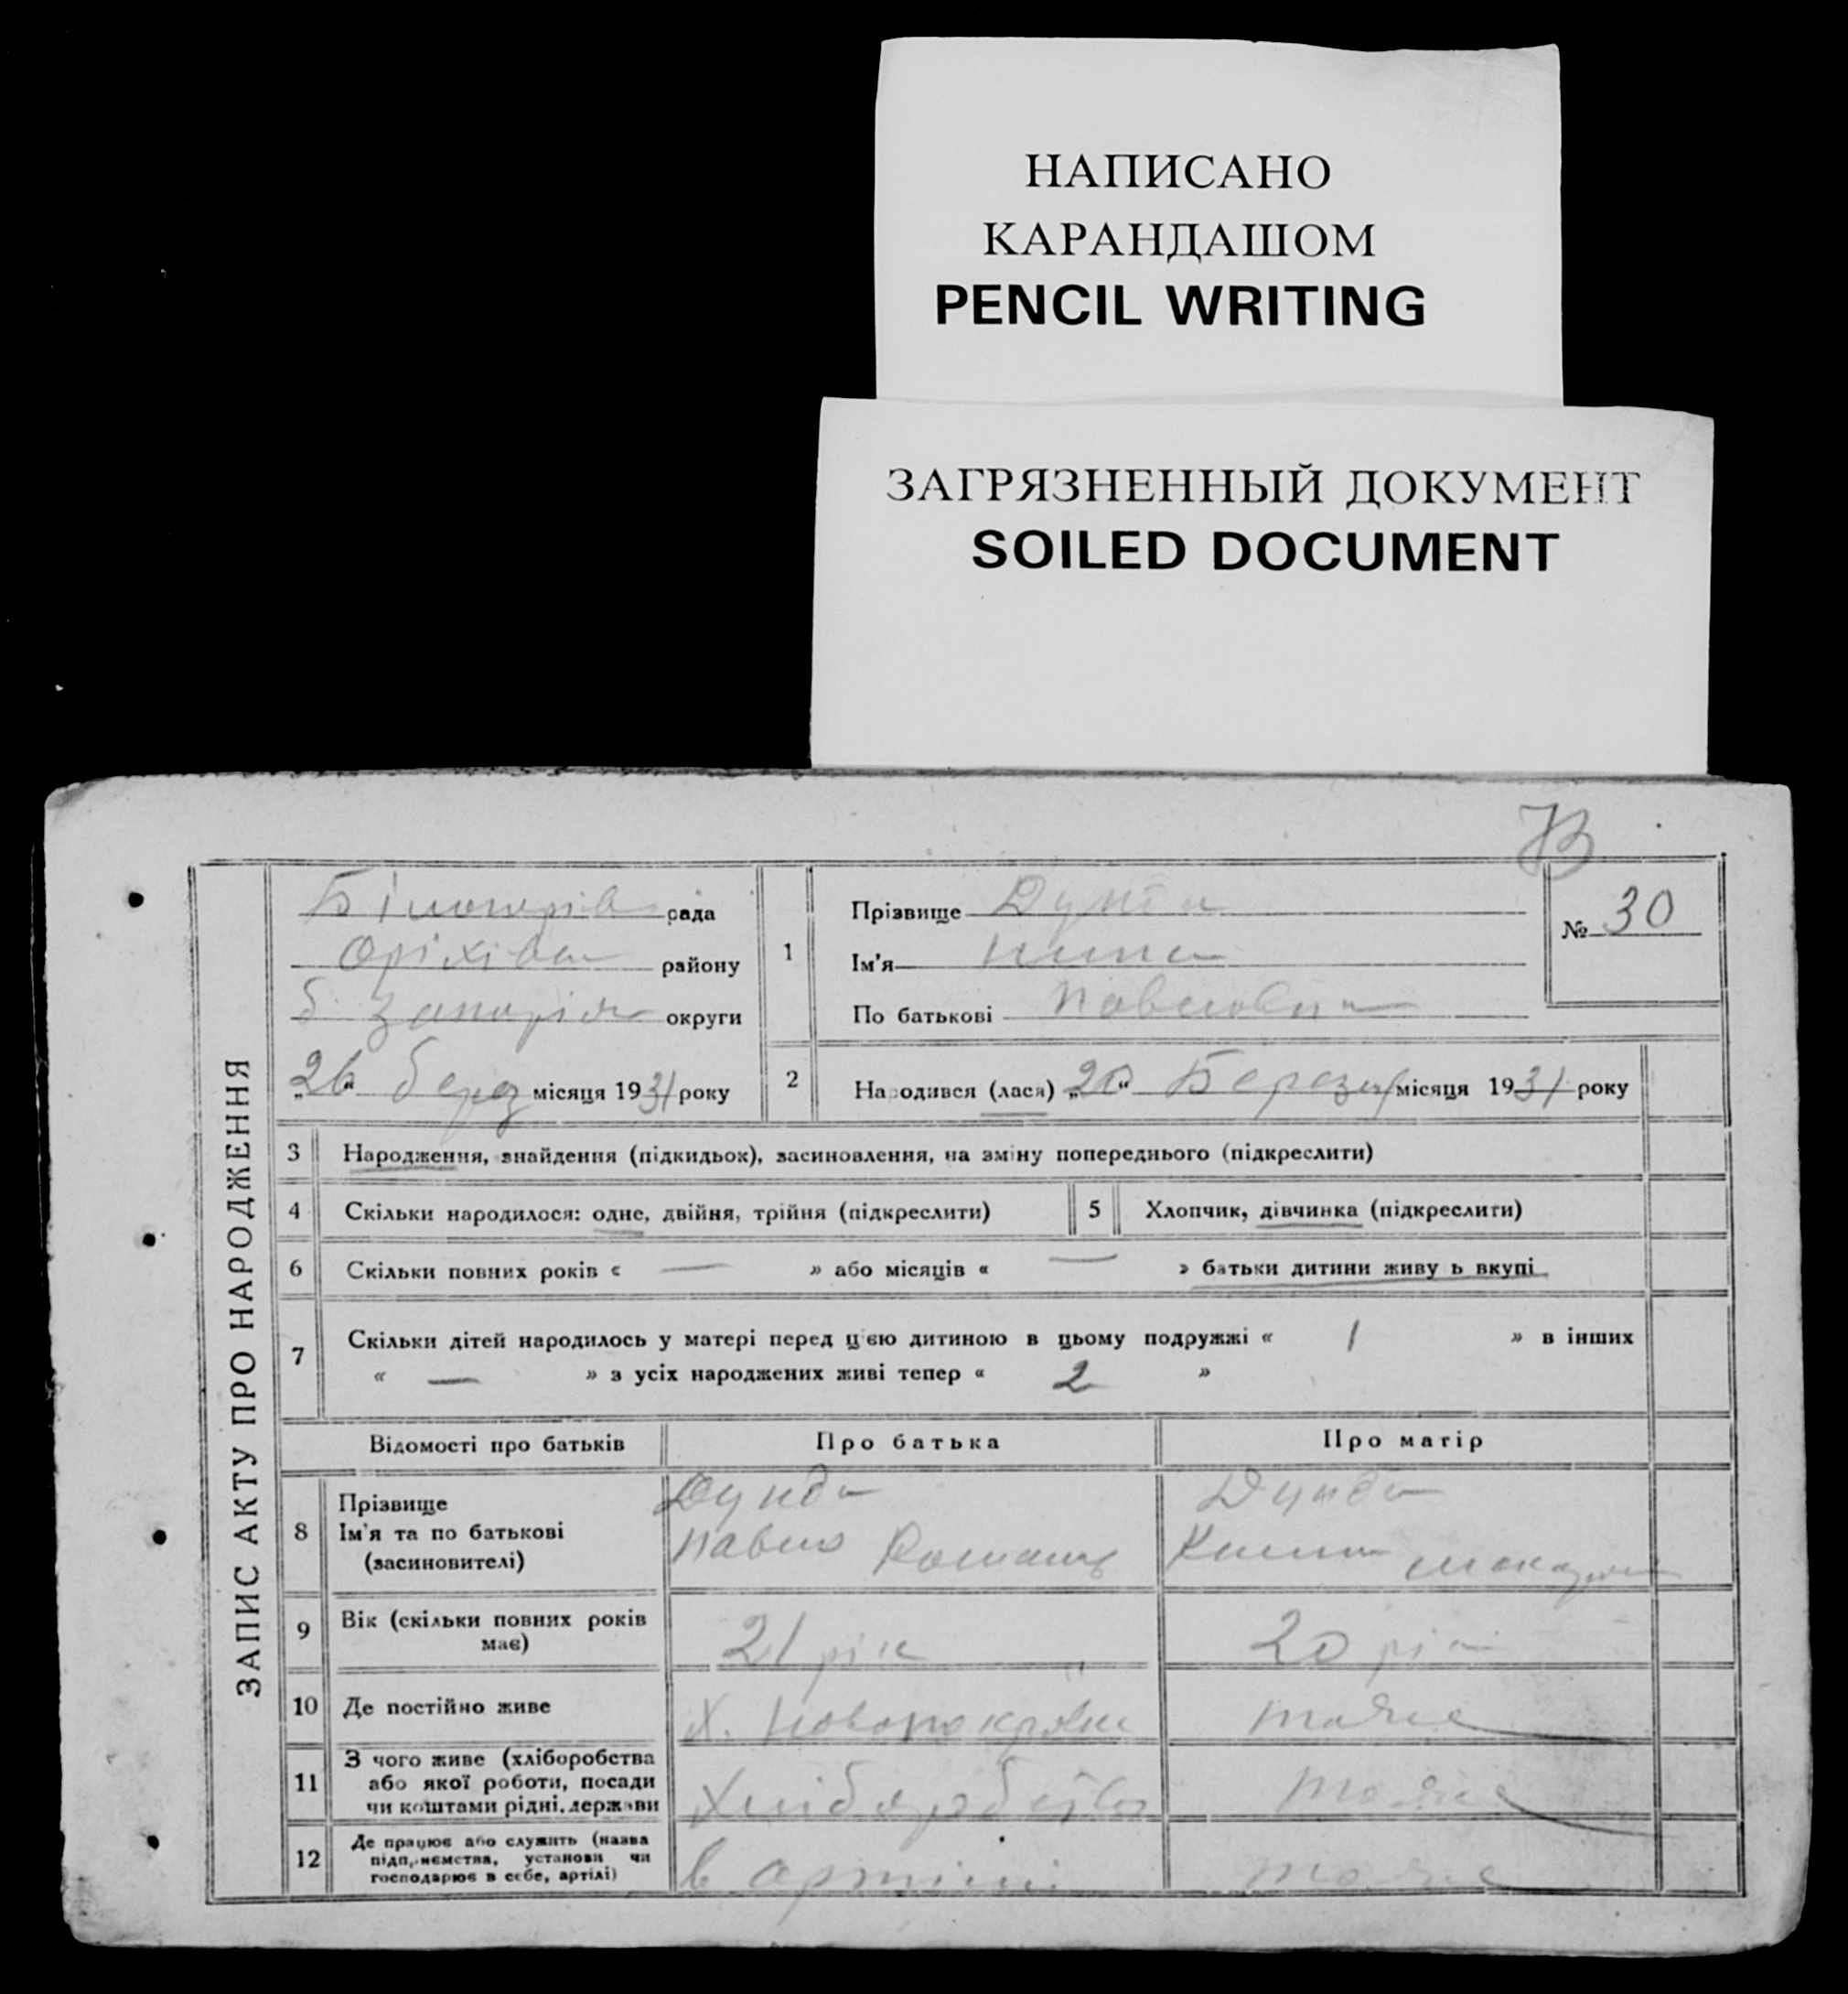 НАПИСАНО
КАРАНДАШОМ
PENCIL WRITING
ЗАГРЯЗНЕННЫЙ ДОКУМЕНТ
SOILED DOCUMENT
ЗАПИС АКТУ ПРО НАРОДЖЕННЯ
рада
Оріхів району
б. Запоріж округи
„26“ берез місяця 1931 року
1
Прізвище Дунда
Ім'я Нина
По батькові Павловна
№ 30
2
Народився (лася) „20“ Березня місяця 1931 року
3 Народження, знайдення (підкидьок), засиновлення, на зміну попереднього (підкреслити)
4 Скільки народилося: одне, двійня, трійня (підкреслити) 5 Хлопчик, дівчинка (підкреслити)
6 Скільки повних років « — » або місяців « — » батьки дитини живу ь вкупі
7 Скільки дітей народилось у матері перед цією дитиною в цьому подружжі « 1 » в інших
« — » з усіх народжених живі тепер « 2 »
Відомості про батьків Про батька Про матір
8 Прізвище
Ім'я та по батькові
(засиновителі)
Дунда
Павло Роман
Дунда
9 Вік (скільки повних років
має)
21 рік
20 рік
10 Де постійно живе Х. тоже
11 З чого живе (хліборобства
або якої роботи, посади
чи коштами рідні, держави
Хліборобство
тоже
12 Де працює або служить (назва
підприємства, установи чи
господарює в себе, артілі)
в артілі
тоже